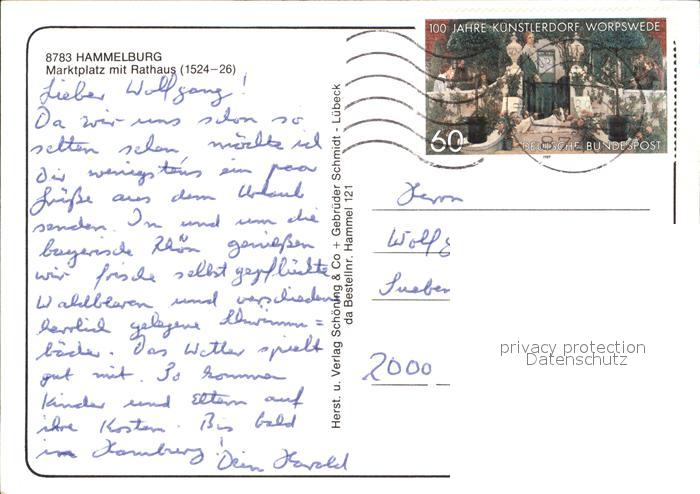 8783 HAMMELBURG
Marktplatz mit Rathaus (1524-26)
Lieber Wolfgang!
Da wir uns schon so
selten sehen möchte ich
Dir wenigstens ein paar
Grüße aus dem Urlaub
senden. In und um die
bayerische Rhön genießen
wir frische selbst gepflückte
Waldbeeren und verschiedene
herrlich gelegene Schwimm=
bäder. Das Wetter spielt
gut mit. So kommen
Kinder und Eltern auf
ihre Kosten. Bis bald
in Hamburg!
Dein Harald
Herst. u. Verlag Schöning & Co + Gebrüder Schmidt - Lübeck
da Bestellnr. Hammel 121
100 JAHRE KÜNSTLERDORF WORPSWEDE
60
DEUTSCHE BUNDESPOST
1989
Herrn
Wolfg
2000
privacy protection
Datenschutz